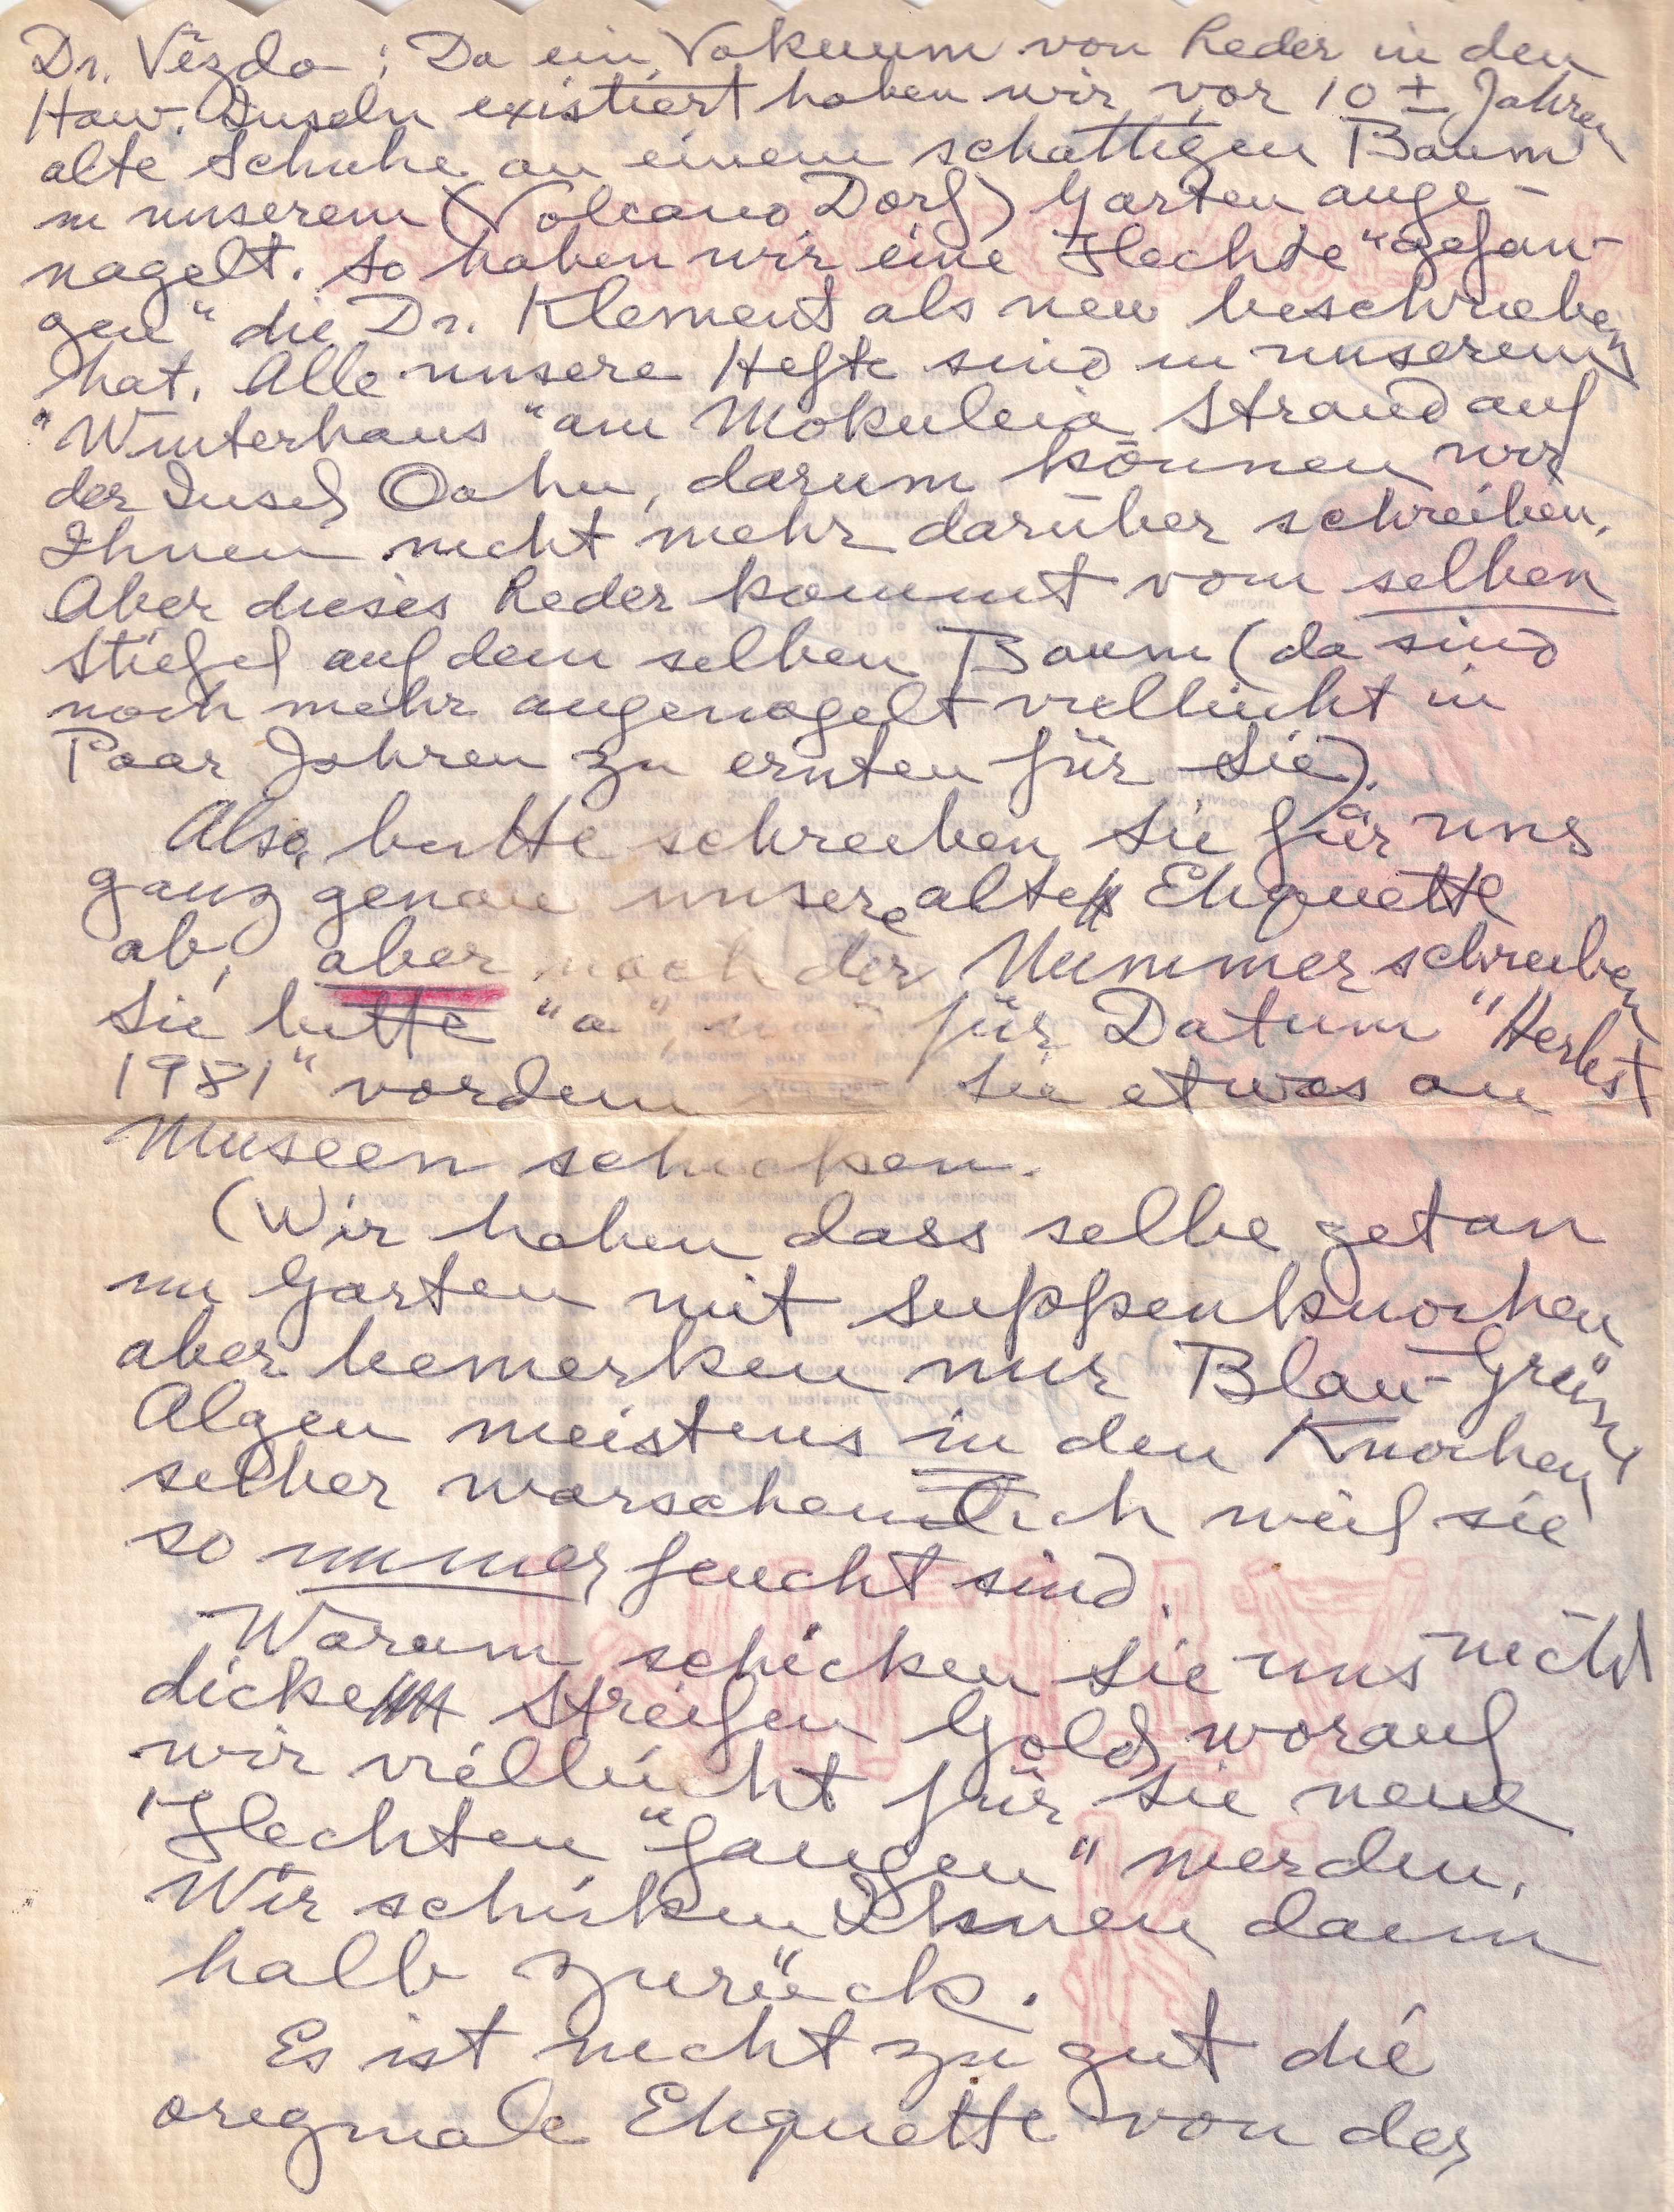 Dr. Vězda ; Da ein Vakuum von Leder in den
Haw. Inseln existiert haben wir vor 10 ± Jahren
alte Schuhe an einem schattigen Baum
in unserem (Volcano Dorf) Garten ange-
nagelt. So haben wir eine Flechte "gefan-
gen" die Dr. Klement als neu beschrieben
hat. Alle unsere Hefte sind in unserem
"Winterhaus" am Mokuleia Strand auf
der Insel Oahu, darum können wir
Ihnen nicht mehr darüber schreiben.
Aber dieses Leder kommt vom selben
Stiefel auf dem selben Baum (da sind
noch mehr angenagelt vielleicht in
Paar Jahren zu ernten für Sie).
Also, bitte schreiben Sie für uns
ganz genau unsere alte Etiquette
ab, aber nach der Nummer schreiben
Sie bitte "a" für Datum "Herbst
1981" vordem Sie etwas an
Museen schicken.
(Wir haben dass selbe getan
im Garten mit Suppenknochen
aber bemerken nur Blau-Grün
Algen meistens in den Knochen
selber warscheinlich weil sie
so immer feucht sind.
Warum schicken Sie uns nicht
dicke Streifen Gold worauf
wir vielleicht für Sie neue
Flechten "fangen" werden.
Wir schicken Ihnen dann
halb zurück.
Es ist nicht zu gut die
originale Etiquette von der